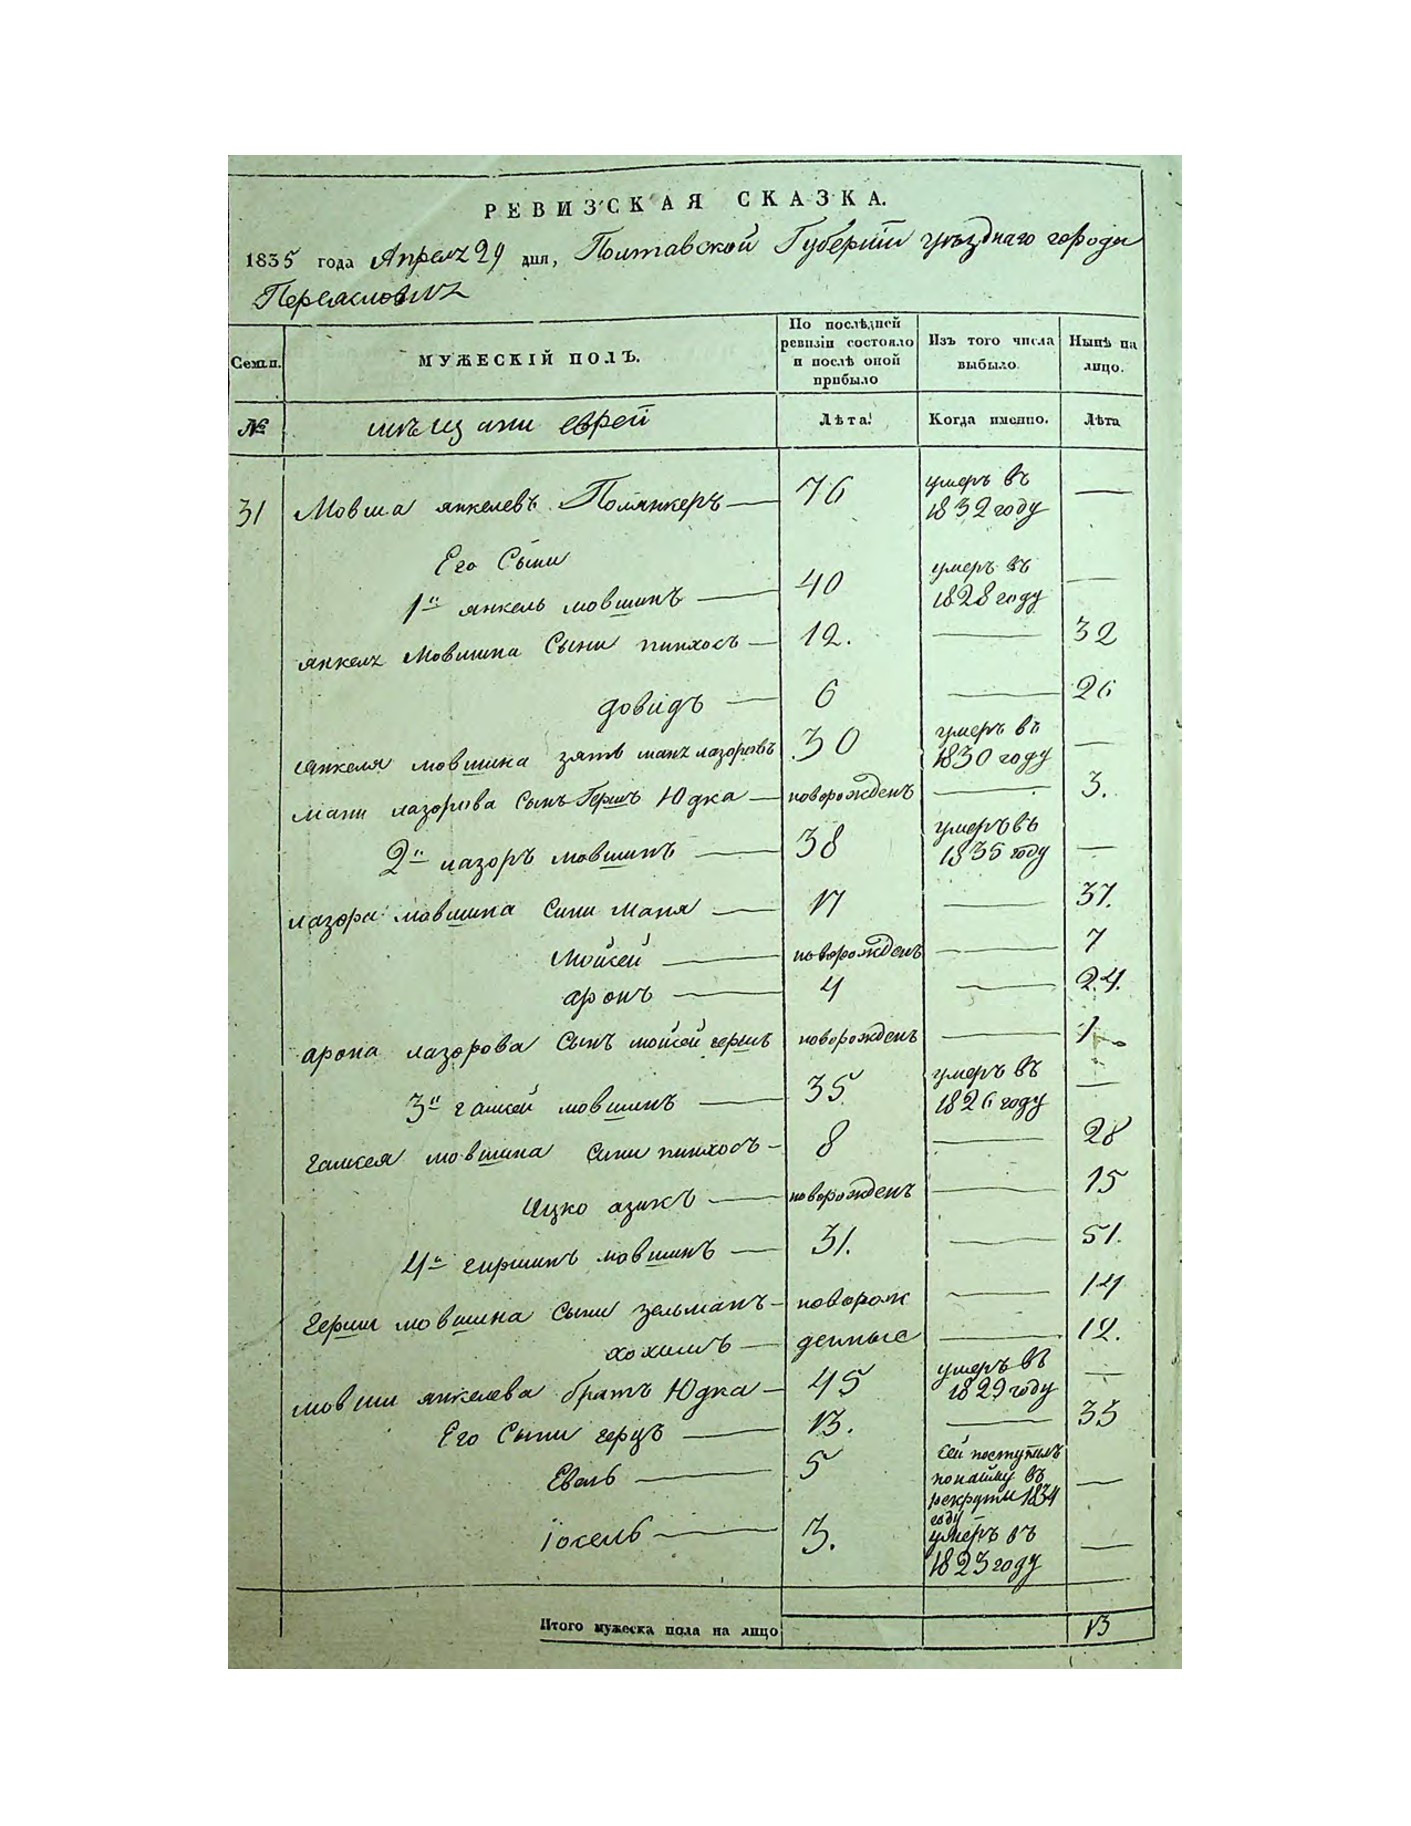 РЕВИЗСКАЯ СКАЗКА.
1835 года Апреля 29 дня, Полтавской Губернїи уѣзднаго города
Переяславля
Семьи. МУЖЕСКІЙ ПОЛЪ. По послѣдней ревизіи состояло и послѣ оной прибыло Изъ того числа выбыло. Нынѣ на лицо.
№ мѣщани еврей Лѣта. Когда именно. Лѣта
31 Мовша янкелевъ Полянкеръ — 76 умеръ въ 1832 году —
Его Сыни
1й янкель мовшинъ — 40 умеръ въ 1828 году —
янкеля Мовшина Сыни пинхосъ — 12. — 32
довидъ — 6 — 26
янкеля мовшина зять манъ лазоровъ 30 умеръ в 1830 году —
мани лазорова Сынъ Гершъ Юдка — новорожденъ — 3.
2й лазоръ мовшинъ — 38 умеръ въ 1835 году —
лазора мовшина Сини маня — 17 — 37.
Мойсей — новорожденъ — 7
аронъ — 4 — 24.
арона лазорова Сынъ мойсей гершъ новорожденъ — 1
3й гамшей мовшинъ — 35 умеръ въ 1826 году —
мовшина Сини пинхосъ — 8 — 28
Ицко азикъ — новорожденъ — 15
4й гиршинъ мовшинъ — 31. — 51.
Герши мовшина Сыни зельманъ — новорож — 14
хохимъ — денные — 12.
мовши янкелева братъ Юдка — 45 умеръ въ 1829 году —
Его Сыни герцъ — 13. — 33
Евель — 5 сей поступилъ по найму въ рекруты 1834 году —
Іосель — 3. умеръ въ 1823 году —
Итого мужеска пола на лицо 13